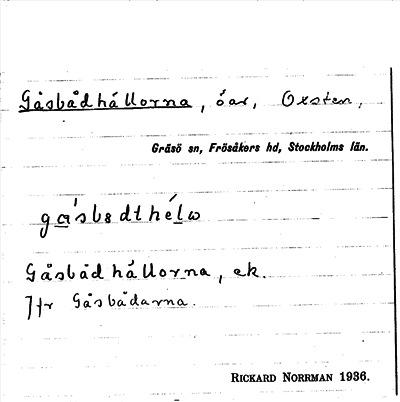 Gåsbådhällorna, öar, Örsten,
Gräsö sn, Frösåkers hd, Stockholms län.
Gåsbådhällorna, ek.
Jfr Gåsbådarna.
RICKARD NORRMAN 1936.